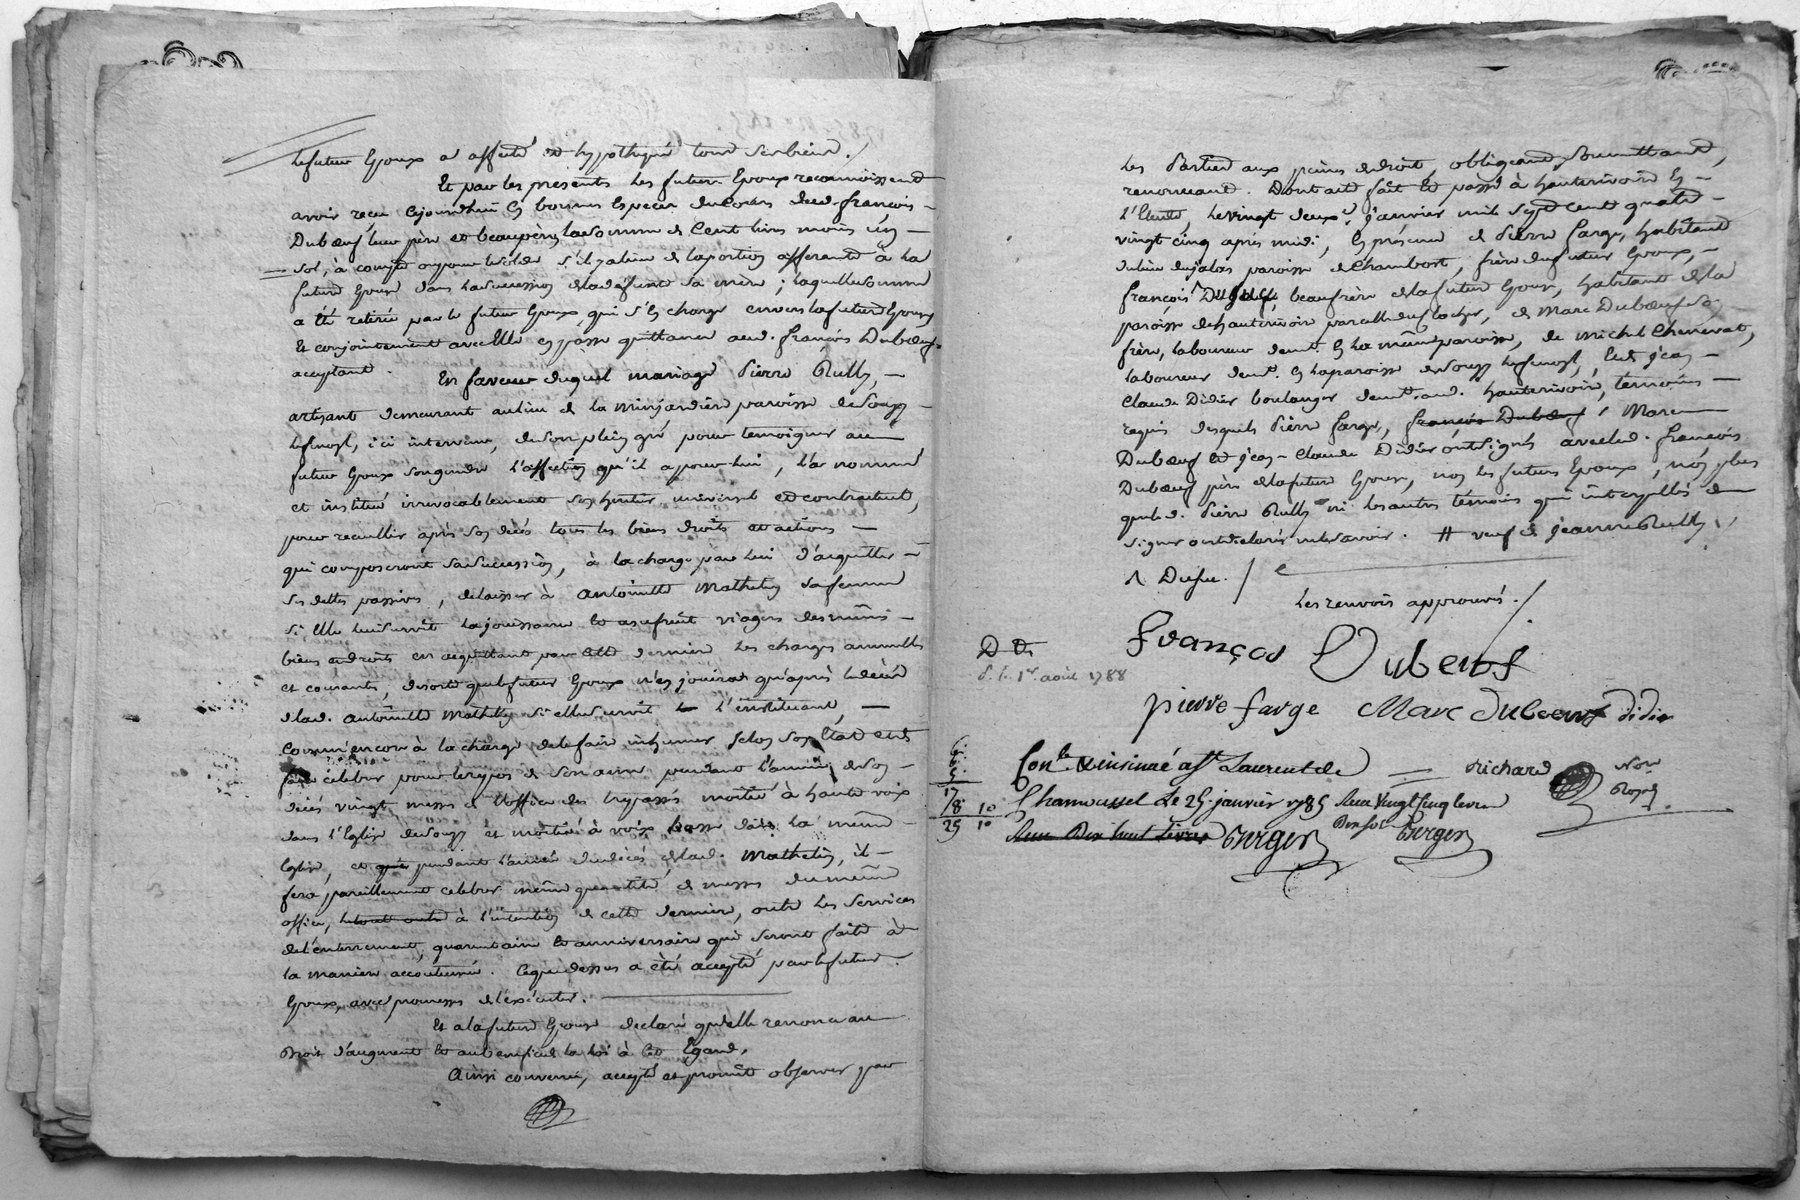 le futur Epoux a affecté et hypothequé tous ses biens ./
Et par les presents les futurs Epoux reconnoissent
avoir reçu cejourdhui En bonnes Especes de Cours dud. françois
Dubœuf leur père et beaupère la somme de Cent livres moins un
sol, à compte ou pour le solde s'il y a lieu de la portion afferante à la
future Epouse dans la succession de la defunte sa mere ; laquelle somme
a Eté retirée par le futur Epoux qui s'En charge envers la future Epouse
Et conjointement avec Elle En passe quittance aud. françois Dubœuf
acceptant. En faveur duquel mariage Pierre Rully,
artisant demeurant au lieu de la minjandière paroisse de Souzy
, ici intervenu, de son plein gré pour temoigner au
futur Epoux son gendre l'affection qu'il a pour lui, l'a nommé
et institué irrevocablement son heritier universel et contractuel,
pour recueillir après son décés tous les biens droits et actions
qui composeront sa succession, à la charge par lui d'acquitter
ses dettes passives, de laisser à antoinette Mathelin sa femme
si Elle lui survit la jouissance et usufruit viager des mêmes
biens et droits en acquittant par cette derniere les charges annuelles
et courantes, de sorte que le futur Epoux n'en jouira qu'après le décès
de lad. antoinette Mathelin si elle survit à l'instituant,
Comm'encore à la charge de le faire inhumer selon son Etat et de
faire célébrer pour le repos de son ame pendant l'année de son
décès vingt messes de l'office des trepassés moitié à haute voix
dans l'Eglise de Souzy et moitié à voix basse dans la même
Eglise, et que pendant l'année du décés de lad. Mathelin, il
fera pareillement celebrer même quantité de messes du même
office, le tout outre à l'intention de cette derniere, outre les services
de l'enterrement, quarantaine et anniversaire qui seront faits à
la maniere accoutumée. Ce que dessus a été accepté par le futur
Epoux, avec promesse de l'exécuter.
Et a la future Epouse declaré qu'elle renonce au
Droit d'augment et au benefice de la loi à cet Egard.
Ainsi convenu, accepté et promit observer par
les Parties aux peines de droit, obligeant, soumettant,
renonceant. Dont acte fait et passé à hauterivoire En
l'Etude, le vingt deux janvier mil sept cent quatre
vingt cinq après midi, En présence de Pierre farge, habitant
du lieu dujalas paroisse de Chambost, frère du futur Epoux,
françois Dufue beaufrère de la future Epouse, habitant de la
paroisse de hauterivoire, de Marc Dubœuf son
frère, laboureur demt. En la même paroisse, de michel Chenevat,
laboureur demt. En la paroisse de Souzy, Et de jean
Claude Didier boulanger demt. aud. hauterivoire, temoins
requis desquels Pierre farge, françois Dubœuf, Marc
Dubœuf et jean-Claude Didier ont signés avec led. françois
Dubœuf père de la future Epouse, non les futurs Epoux, non plus
que led. Pierre Rully ni les autres témoins qui interpellés de
signer ont declarés ne le savoir. # veuf de jeanne Rully
^ Dufue. /
Les renvois approuvés. /
D de
d. le 1er août 1788
François Dubeuf
pierre farge Marc dubeuf didier
6
6
5
17
18 10
25 10
Con.le & insinué a St Laurent de Richard Nore
Chamousset Le 25 janvier 1785 Reçu Vingt cinq livres Royal
Reçu Dix huit Livres Berger Dix sol Berger